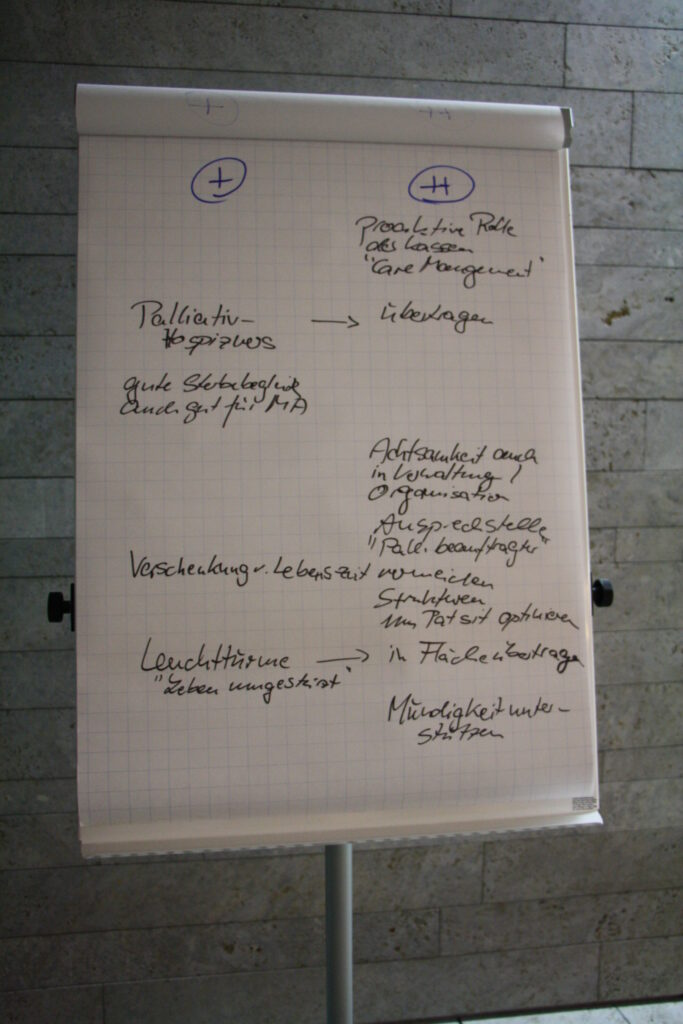 + ++
+ ++
Proaktive Rolle
der Kassen
"Care Mangement"
Palliativ- → übertragen
Hospizvers
gute Sterbebegleitg
auch gut für MA
Achtsamkeit auch
in Verwaltung /
Organisation
Ansprechstelle
"Pall. beauftragter"
Verschenkung v. Lebenszeit vermeiden
Strukturen
um Pat sit optimieren
Leuchttürme → in Fläche übertragen
"Leben
Mündigkeit unter-
stützen